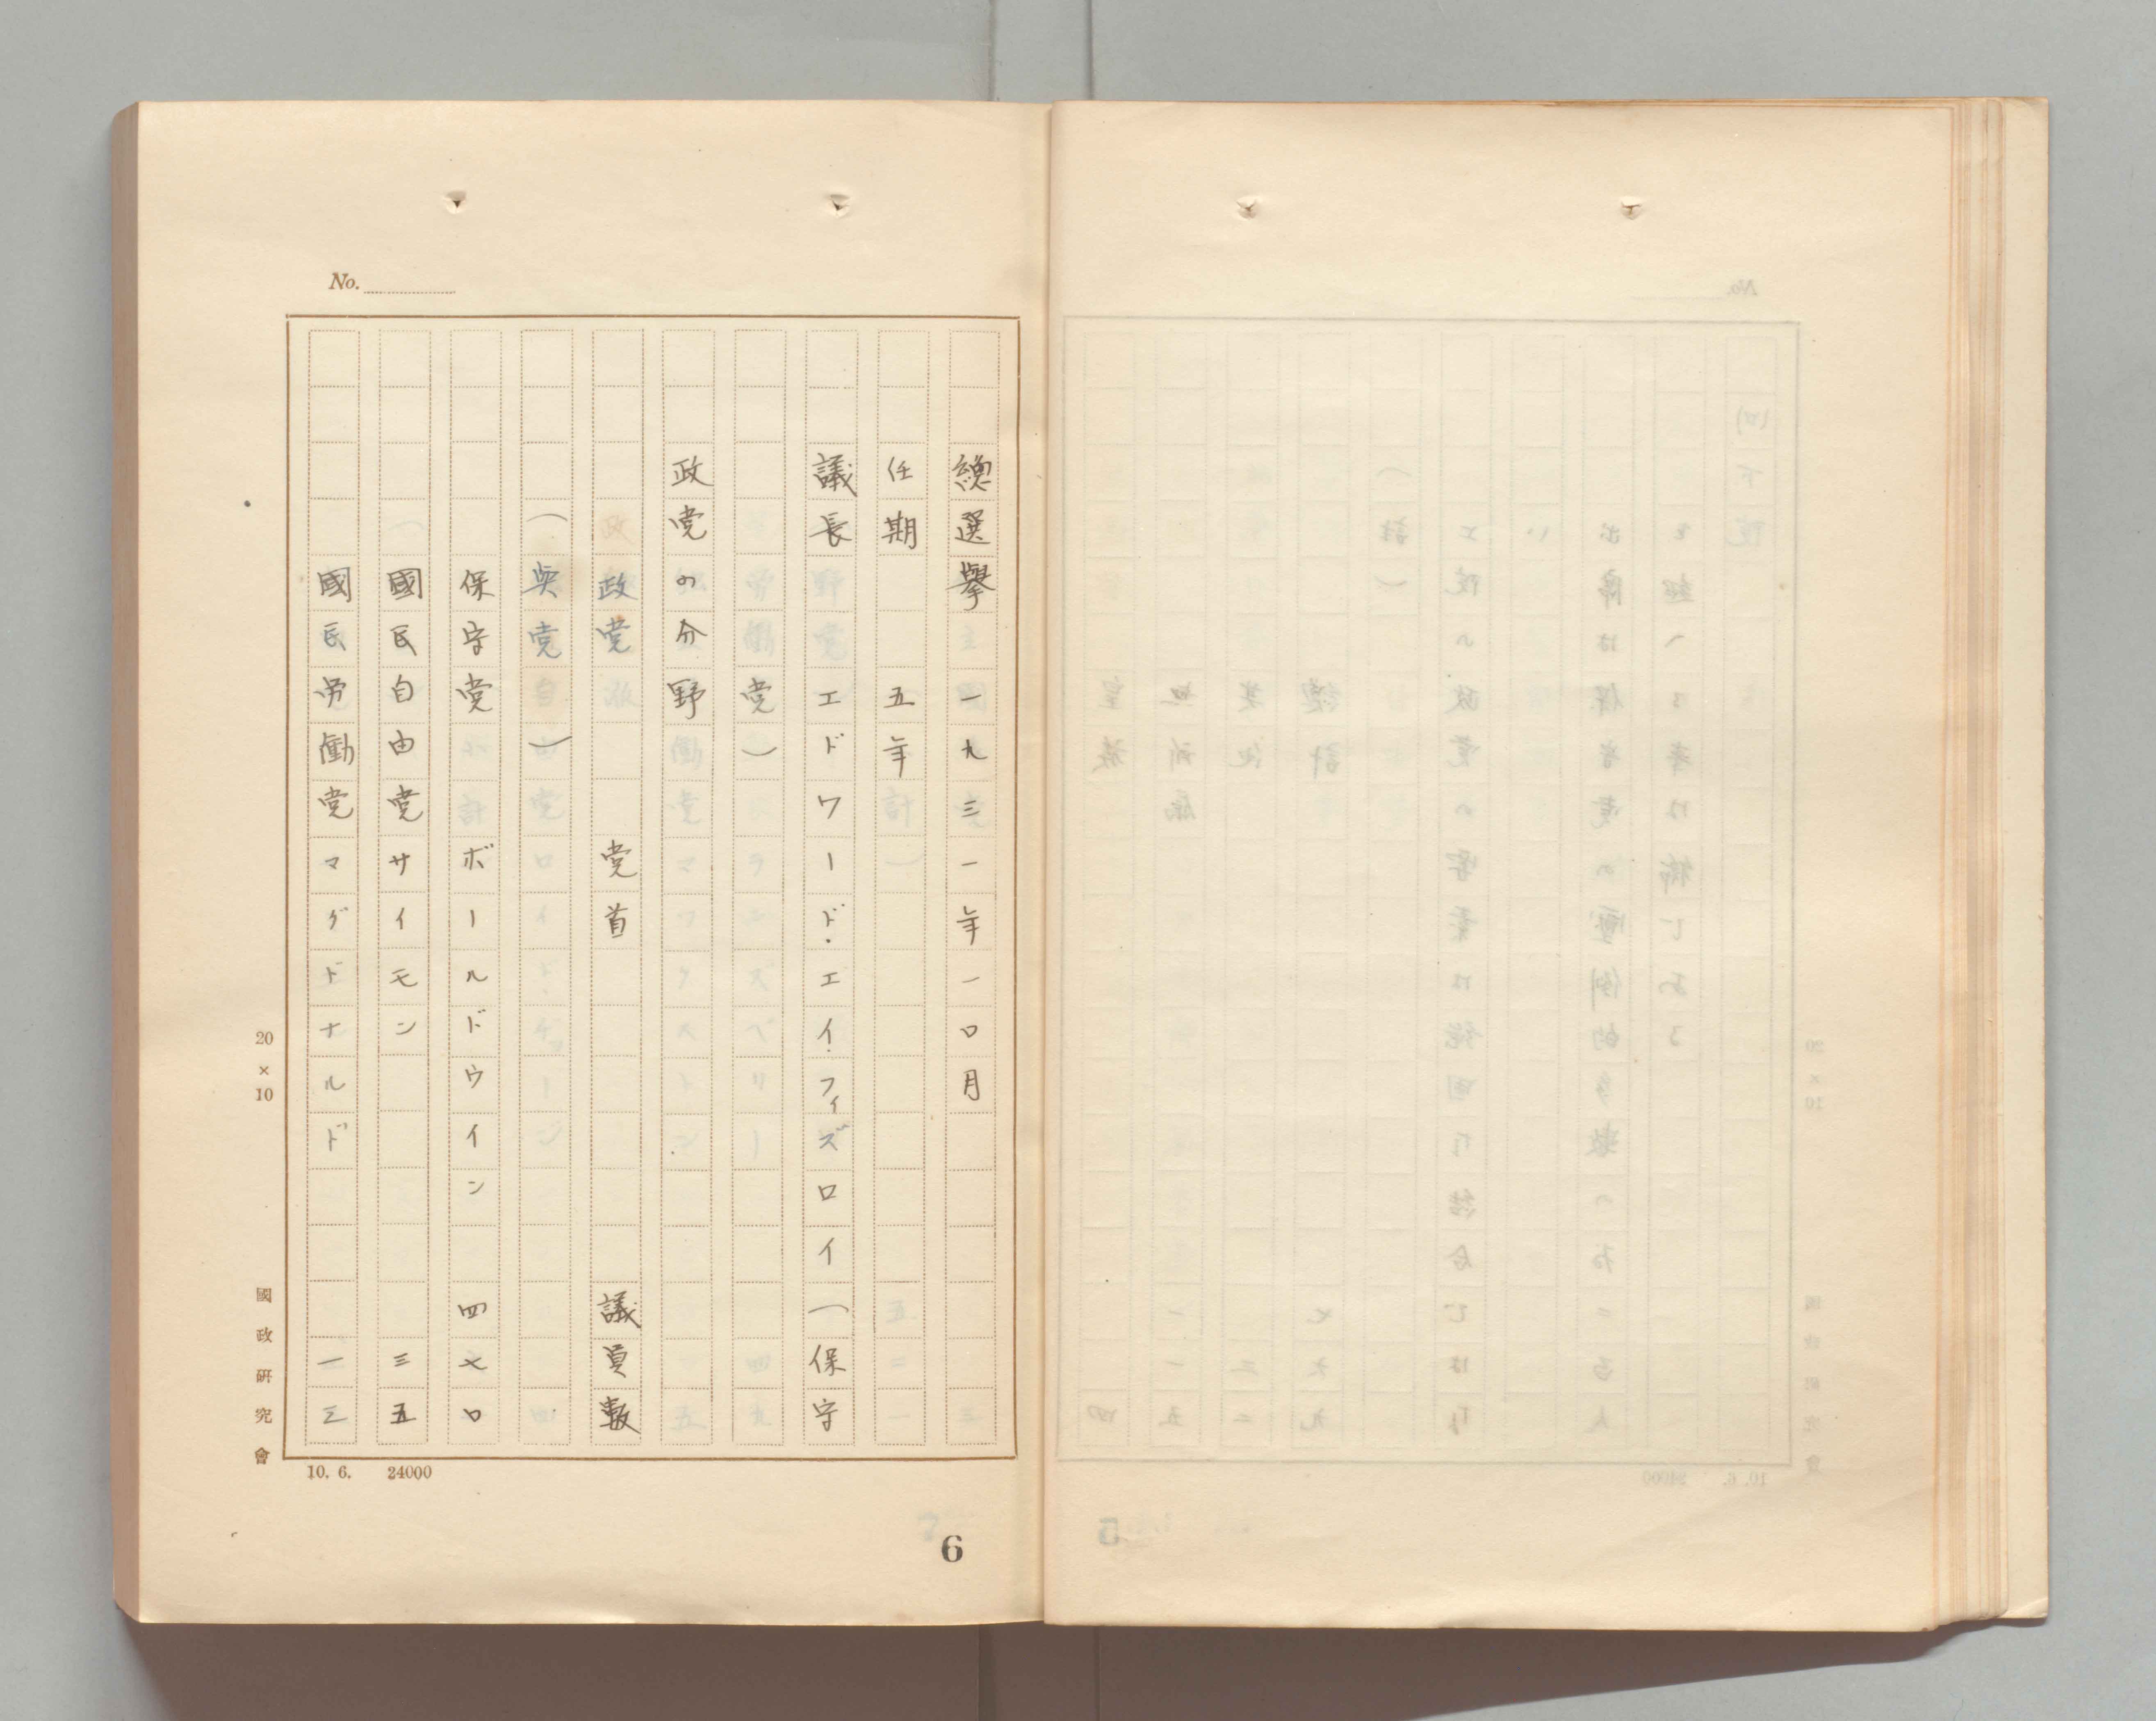 No.
總選擧 一九三一年一〇月
任期 五年
議長 エドワード・エイ・フィズロイ(保守
党)
政党の分野
政党 党首 議員數
(與党)
保守党 ボールドウイン 四七〇
國民自由党サイモン 三五
國民労働党マグドナルド 一三
20×10
國政研究會
10. 6. 24000
6